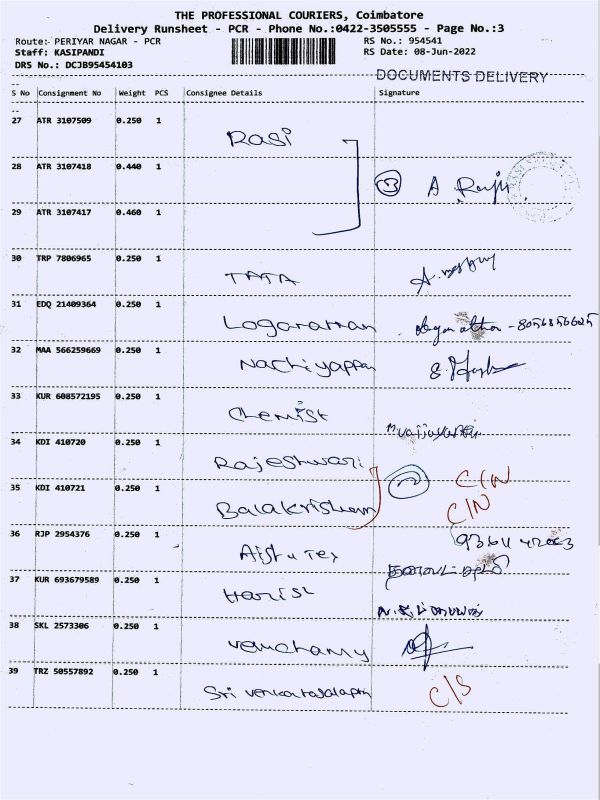 THE PROFESSIONAL COURIERS, Coimbatore
Delivery Runsheet - PCR - Phone No.:0422-3505555 - Page No.:3
Route:- PERIYAR NAGAR - PCR RS No.: 954541
Staff: KASIPANDI RS Date: 08-Jun-2022
DRS No.: DCJB95454103
DOCUMENTS DELIVERY
S No Consignment No Weight PCS Consignee Details Signature
27 ATR 3107509 0.250 1 Rasi
28 ATR 3107418 0.440 1 3 A Raju
29 ATR 3107417 0.460 1
30 TRP 7806965 0.250 1 TATA
31 EDQ 21409364 0.250 1 Loganathan
32 MAA 566259669 0.250 1 Nachiyappan
33 KUR 608572195 0.250 1 Chemist
34 KDI 410720 0.250 1 Rajeshwari C/N
35 KDI 410721 0.250 1 Balakrishnan C/N
36 RJP 2954376 0.250 1
37 KUR 693679589 0.250 1 Harish
38 SKL 2573306 0.250 1
39 TRZ 50557892 0.250 1 Sri C/S